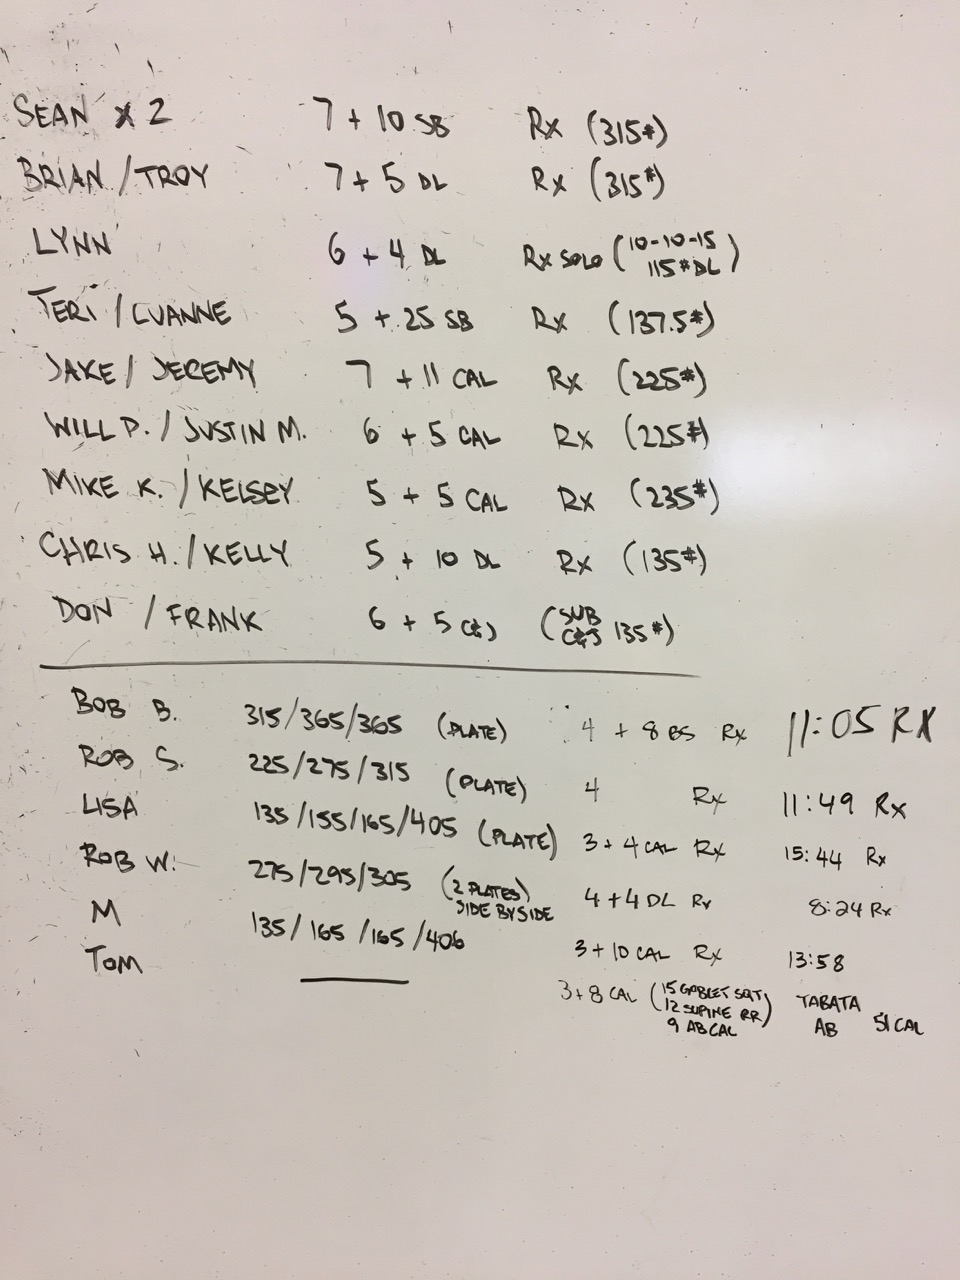 SEAN x 2 7 + 10 SB Rx (315#)
BRIAN / TROY 7 + 5 DL Rx (315#)
LYNN 6 + 4 DL Rx SOLO (10-10-15 115# DL)
TERI / LUANNE 5 + 25 SB Rx (137.5#)
JAKE / JEREMY 7 + 11 CAL Rx (225#)
WILL P. / JUSTIN M. 6 + 5 CAL Rx (225#)
MIKE K. / KELSEY 5 + 5 CAL Rx (235#)
CHRIS H. / KELLY 5 + 10 DL Rx (135#)
DON / FRANK 6 + 5 C&J (SUB C&J 135#)
BOB B. 315/365/365 (PLATE) 4 + 8 BS Rx 11:05 RX
ROB S. 225/275/315 (PLATE) 4 Rx 11:49 Rx
LISA 135/155/165/405 (PLATE) 3 + 4 CAL Rx 15:44 Rx
ROB W. 275/295/305 (2 PLATES) SIDE BY SIDE 4 + 4 DL Rx 8:24 Rx
M 135/165/165/406 3 + 10 CAL Rx 13:58
TOM 3 + 8 CAL (15 GOBLET SQT 12 SUPINE RR) 9 AB CAL TABATA AB 51 CAL